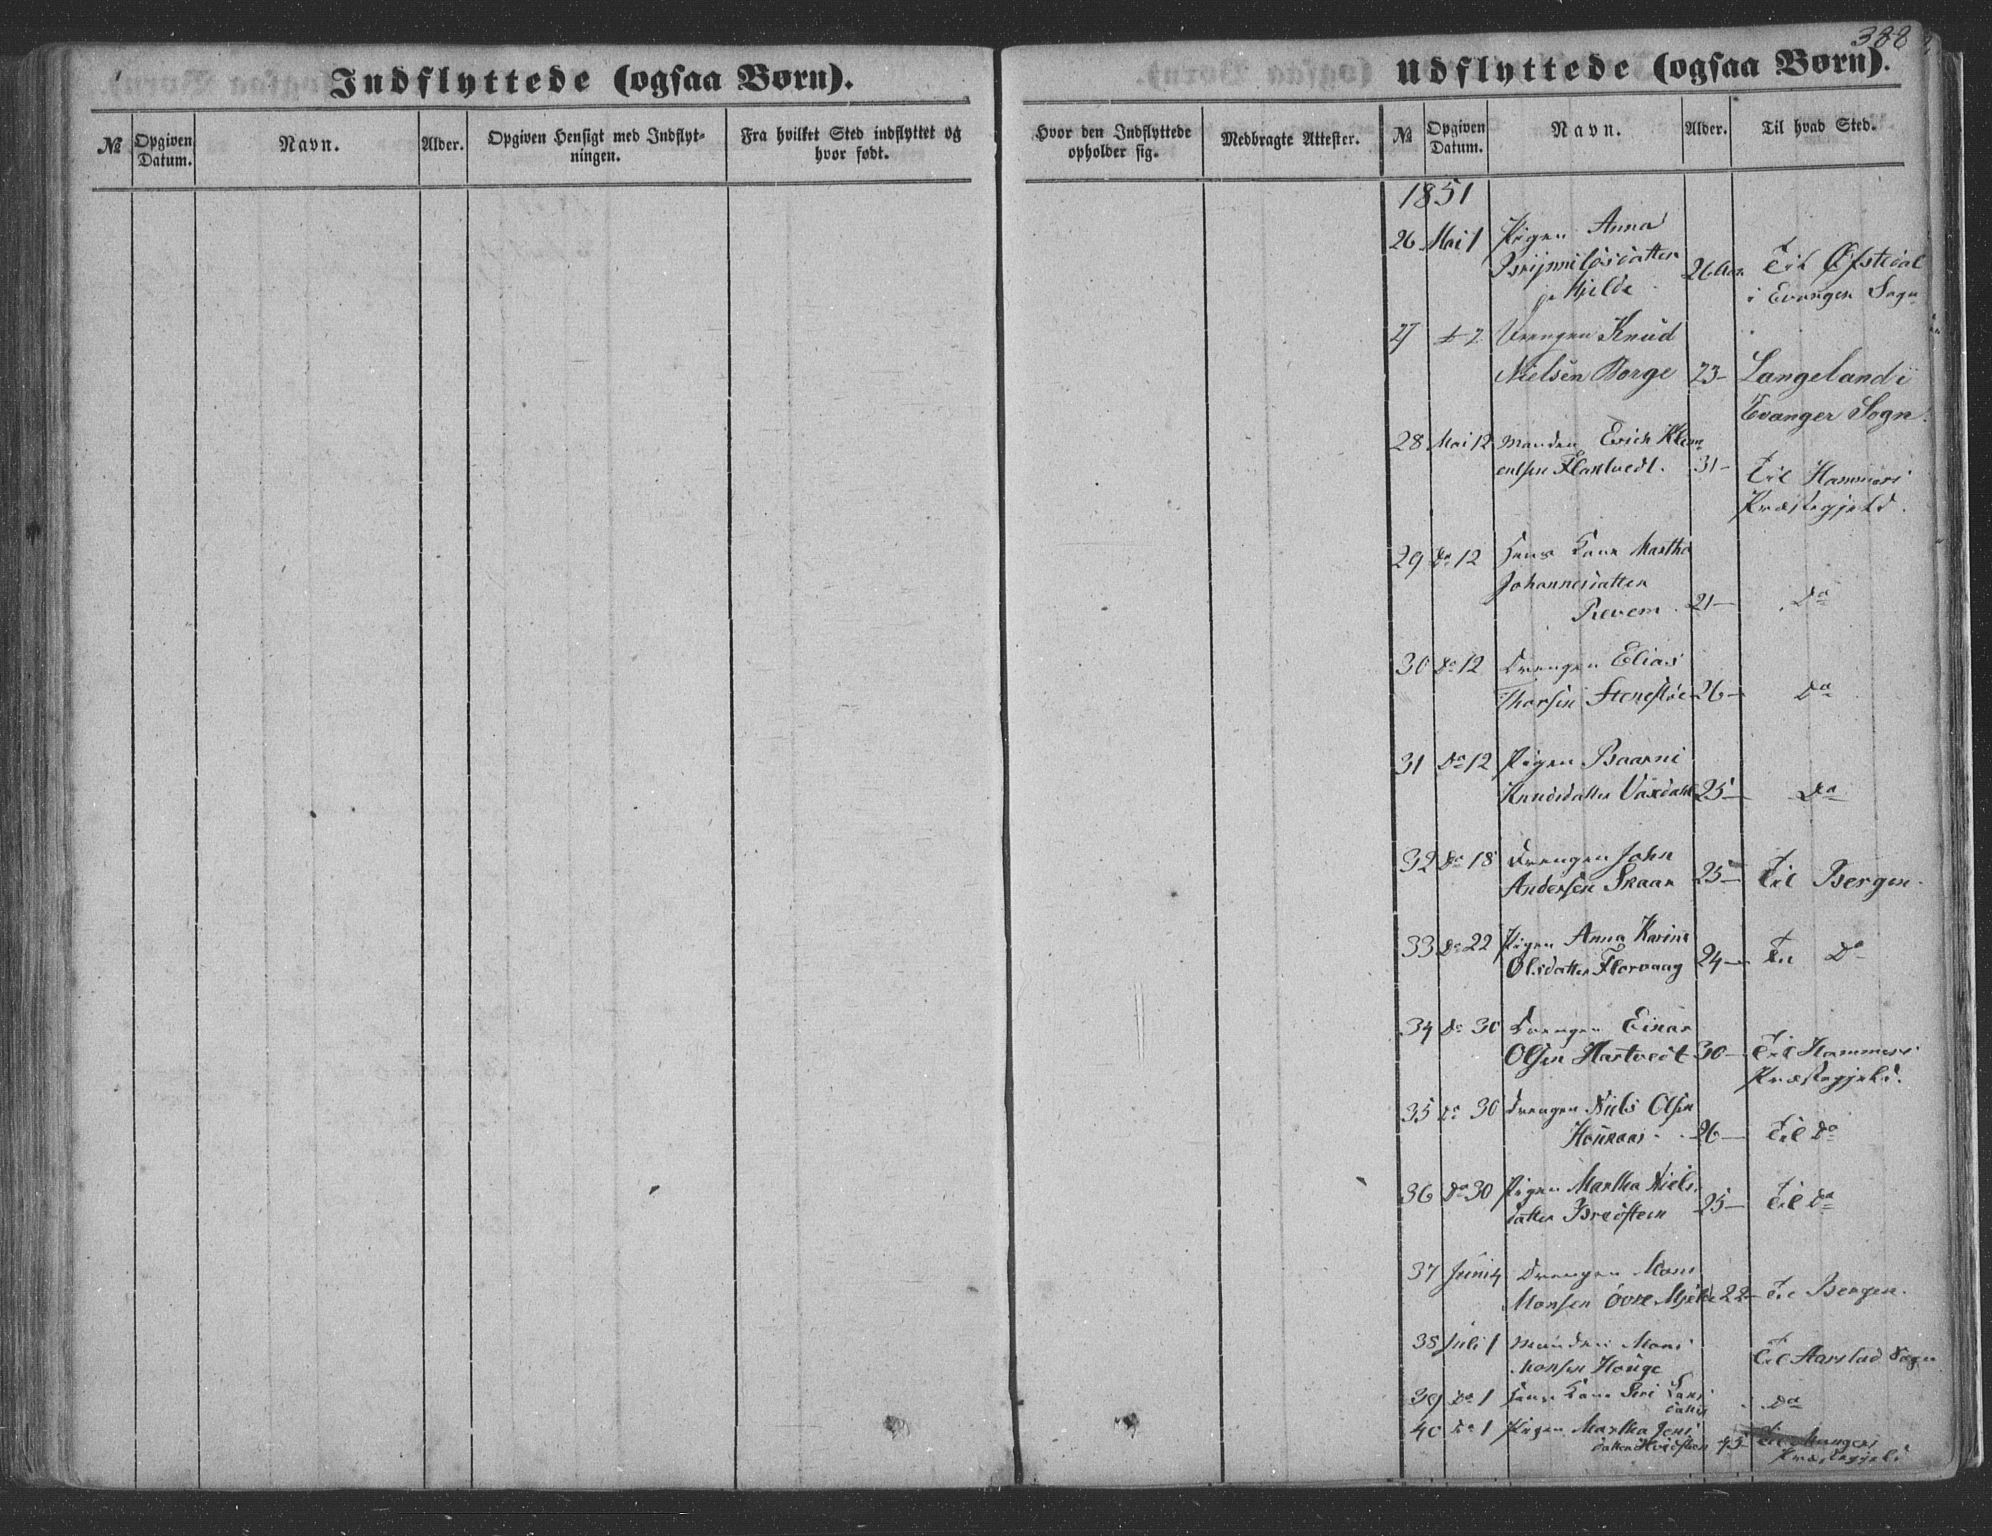 388
Indflyttede (ogsaa Børn).
Udflyttede (ogsaa Børn).
No
Opgiven Datum.
Navn.
Alder.
Opgiven Hensigt med Indflyt-
ningen.
Fra hvilket Sted indflyttet og
hvor født.
Hvor den Indflyttede
opholder sig.
Medbragte Attester.
No
Opgiven Datum.
Navn.
Alder.
Til hvad Sted.
1851
26 Mai 1 Pigen Anna
Brijnnilfsdatter 26 Aar. Til Øfstedal
Hjelde i Evanger Sogn
27 d 2 Drengen Knud
Nielsen Borge 23- Langeland i
Evanger Sogn.
28 Mai 12 Manden Erich Klem-
entsen Flaktvedt. 31- Til Hammers
Præstegjeld.
29 Do 12 Hans Kone Martha
Johannesdatter
Revem. 21- Do
30 Do 12 Drengen Elias
Thorsen Stenestøe 26- Do
31 Do 12 Pigen Baarni
Knudsdatter Vaxdahl 25- Do
32 Do 18 Drengen John
Andersen Skaar 25- Til Bergen.
33 Do 22 Pigen Anna Karina
Olsdatter Florvaag 24- Til Do
34 Do 30 Drengen Einar
Olsen Hartvedt 30- Til Hammers
Præstegjeld.
35 Do 30 Drengen Niels Olsen
Houkaas. 26- Til Do
36 Do 30 Pigen Martha Niels-
datter Bredsteen 25- Til Do
37 Juni 4 Drengen Mons
Monsen Øvre Mjelde 22- Til Bergen.
38 Juli 1 Manden Mons
Monsen Houge Til Aarstad Sogn
39 Do 1 Hans Kone Siri Lars
datter Do
40 Do 1 Pigen Martha Jens
datter Hvidsteen 45- Til Mangers
Præstegjeld